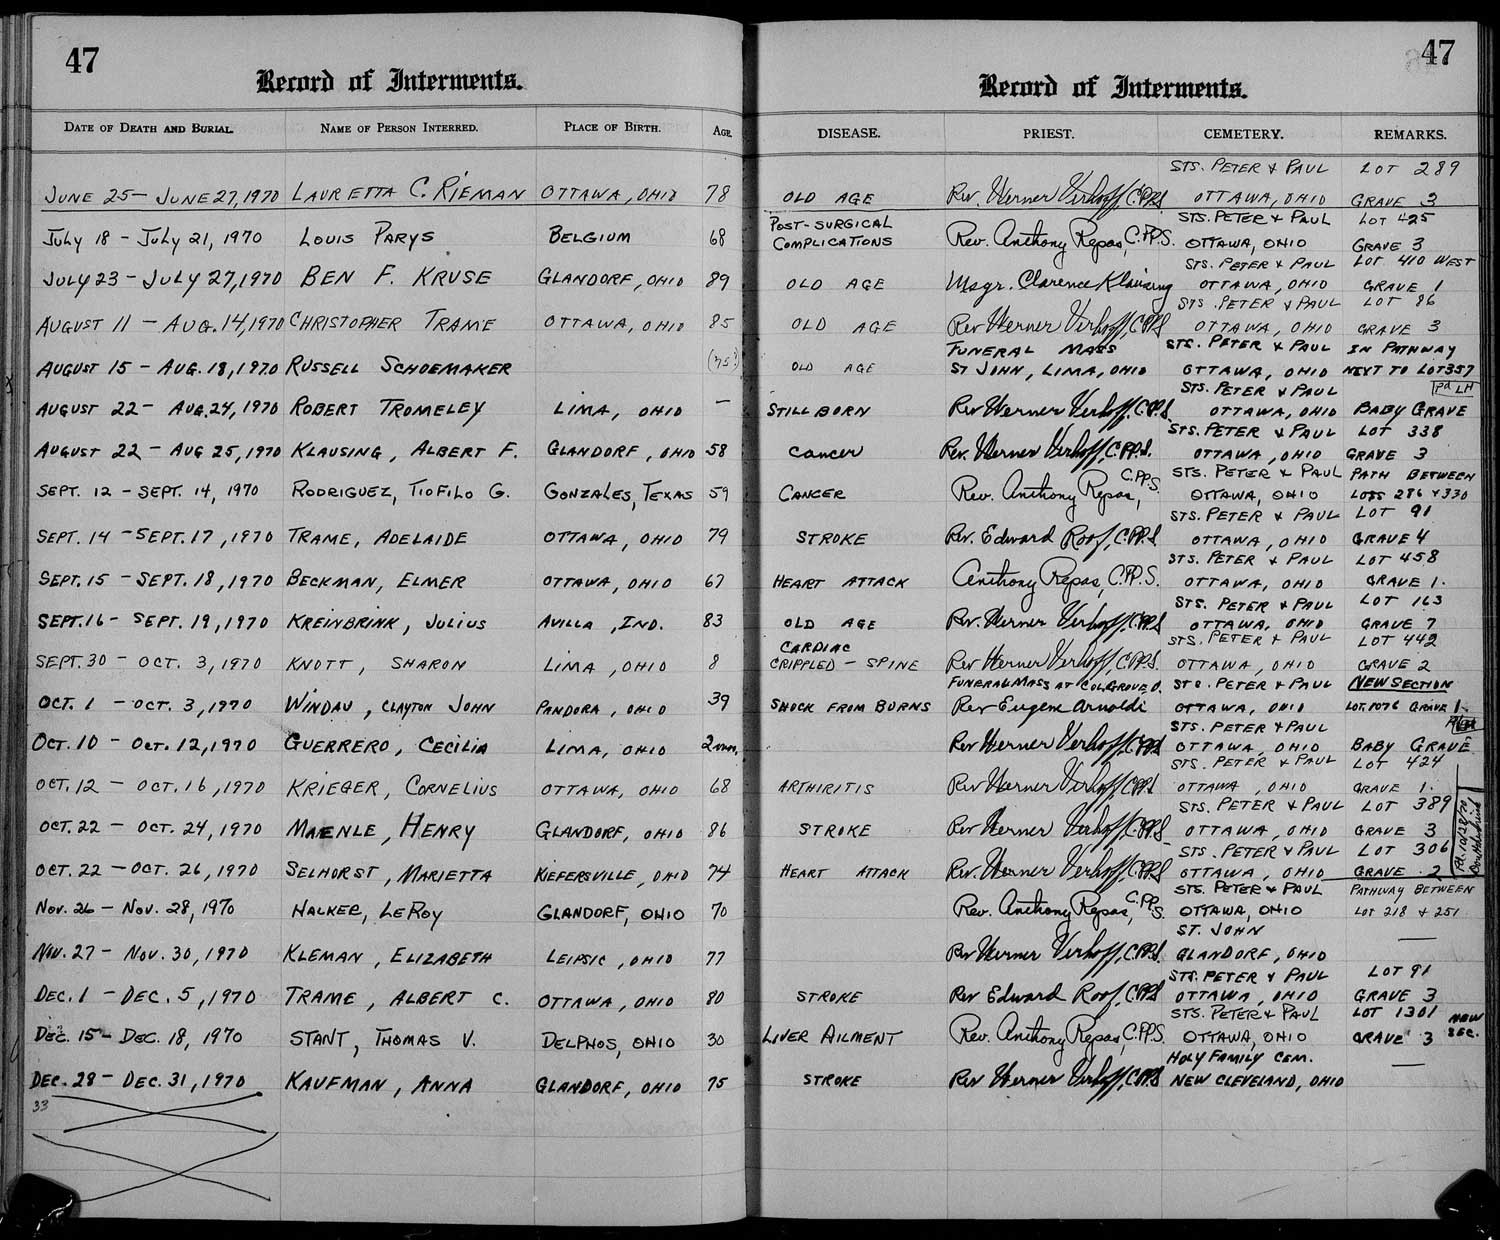 47
Record of Interments.
DATE OF DEATH AND BURIAL. NAME OF PERSON INTERRED. PLACE OF BIRTH. AGE.
JUNE 25 – JUNE 27, 1970 LAURETTA C. RIEMAN OTTAWA, OHIO 78
JULY 18 – JULY 21, 1970 LOUIS PARYS BELGIUM 68
JULY 23 – JULY 27, 1970 BEN F. KRUSE GLANDORF, OHIO 89
AUGUST 11 – AUG. 14, 1970 CHRISTOPHER TRAME OTTAWA, OHIO 85
AUGUST 15 – AUG. 18, 1970 RUSSELL SCHOEMAKER (75?)
AUGUST 22 – AUG. 24, 1970 ROBERT TROMELEY LIMA, OHIO –
AUGUST 22 – AUG 25, 1970 KLAUSING, ALBERT F. GLANDORF, OHIO 58
SEPT. 12 – SEPT. 14, 1970 RODRIGUEZ, TIOFILO G. GONZALES, TEXAS 59
SEPT. 14 – SEPT. 17, 1970 TRAME, ADELAIDE OTTAWA, OHIO 79
SEPT. 15 – SEPT. 18, 1970 BECKMAN, ELMER OTTAWA, OHIO 67
SEPT. 16 – SEPT. 19, 1970 KREINBRINK, JULIUS AVILLA, IND. 83
SEPT. 30 – OCT. 3, 1970 KNOTT, SHARON LIMA, OHIO 8
OCT. 1 – OCT. 3, 1970 WINDAU, CLAYTON JOHN PANDORA, OHIO 39
OCT. 10 – OCT. 12, 1970 GUERRERO, CECILIA LIMA, OHIO 2 mos.
OCT. 12 – OCT. 16, 1970 KRIEGER, CORNELIUS OTTAWA, OHIO 68
OCT. 22 – OCT. 24, 1970 MAENLE, HENRY GLANDORF, OHIO 86
OCT. 22 – OCT. 26, 1970 SELHORST, MARIETTA KIEFERSVILLE, OHIO 74
NOV. 26 – NOV. 28, 1970 HALKER, LEROY GLANDORF, OHIO 70
NOV. 27 – NOV. 30, 1970 KLEMAN, ELIZABETH LEIPSIC, OHIO 77
DEC. 1 – DEC. 5, 1970 TRAME, ALBERT C. OTTAWA, OHIO 80
DEC. 15 – DEC. 18, 1970 STANT, THOMAS V. DELPHOS, OHIO 30
DEC. 28 – DEC. 31, 1970 KAUFMAN, ANNA GLANDORF, OHIO 75
33
47
Record of Interments.
DISEASE. PRIEST. CEMETERY. REMARKS.
STS. PETER & PAUL LOT 289
OLD AGE Rev. Werner Verhoff, C.PP.S. OTTAWA, OHIO GRAVE 3
POST-SURGICAL STS. PETER & PAUL LOT 425
COMPLICATIONS Rev. Anthony Repas, C.PP.S. OTTAWA, OHIO GRAVE 3
STS. PETER & PAUL LOT 410 WEST
OLD AGE Msgr. Clarence Klausing OTTAWA, OHIO GRAVE 1
STS. PETER & PAUL LOT 86
OLD AGE Rev Werner Verhoff, C.PP.S OTTAWA, OHIO GRAVE 3
FUNERAL MASS STS. PETER & PAUL IN PATHWAY
OLD AGE ST JOHN, LIMA, OHIO OTTAWA, OHIO NEXT TO LOT 357
STS. PETER & PAUL Pd LH
STILLBORN Rev Werner Verhoff, C.PP.S. OTTAWA, OHIO BABY GRAVE
STS. PETER & PAUL LOT 338
Cancer Rev. Werner Verhoff, C.PP.S. OTTAWA, OHIO GRAVE 3
STS. PETER & PAUL PATH BETWEEN
CANCER Rev. Anthony Repas, C.PP.S. OTTAWA, OHIO LOTS 286 & 330
STS. PETER & PAUL LOT 91
STROKE Rev. Edward Roof, C.PP.S. OTTAWA, OHIO GRAVE 4
STS. PETER & PAUL LOT 458
HEART ATTACK Anthony Repas, C.PP.S. OTTAWA, OHIO GRAVE 1.
STS. PETER & PAUL LOT 163
OLD AGE Rev. Werner Verhoff, C.PP.S OTTAWA, OHIO GRAVE 7
CARDIAC STS. PETER & PAUL LOT 442
CRIPPLED – SPINE Rev Werner Verhoff, C.PP.S. OTTAWA, OHIO GRAVE 2
FUNERAL MASS AT COL. GROVE O. STS. PETER & PAUL NEW SECTION
SHOCK FROM BURNS Rev Eugene Arnoldi OTTAWA, OHIO LOT. 1076 GRAVE 1.
STS. PETER & PAUL
Rev Werner Verhoff, C.PP.S OTTAWA, OHIO BABY GRAVE
STS. PETER & PAUL LOT 424
ARTHIRITIS Rev Werner Verhoff, C.PP.S OTTAWA, OHIO GRAVE 1.
STS. PETER & PAUL LOT 389
STROKE Rev Werner Verhoff, C.PP.S. OTTAWA, OHIO GRAVE 3
STS. PETER & PAUL LOT 306
HEART ATTACK Rev. Werner Verhoff, C.PP.S OTTAWA, OHIO GRAVE 2
Pd. 10/28/70
STS. PETER & PAUL PATHWAY BETWEEN
Rev. Anthony Repas, C.PP.S. OTTAWA, OHIO LOT 218 & 251
ST. JOHN
Rev Werner Verhoff, C.PP.S. GLANDORF, OHIO —
STS. PETER & PAUL LOT 91
STROKE Rev Edward Roof, C.PP.S OTTAWA, OHIO GRAVE 3
STS. PETER & PAUL LOT 1301 NEW
LIVER AILMENT Rev. Anthony Repas, C.PP.S. OTTAWA, OHIO GRAVE 3 SEC.
HOLY FAMILY CEM.
STROKE Rev Werner Verhoff, C.PP.S NEW CLEVELAND, OHIO —